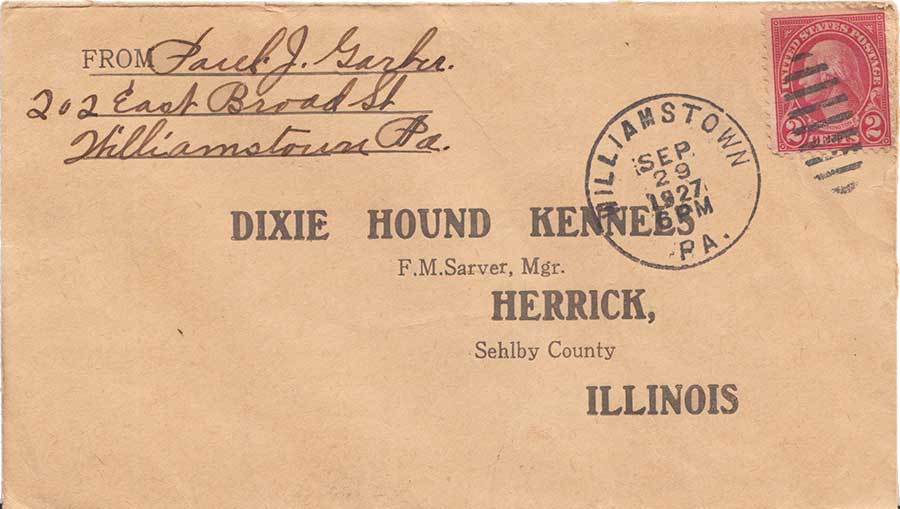 FROM Paul J. Garber.
202 East Broad St
Williamstown Pa.
UNITED STATES POSTAGE
2 2
WILLIAMSTOWN
SEP
29
1927
6 PM
PA.
DIXIE HOUND KENNELS
F.M.Sarver, Mgr.
HERRICK,
Sehlby County
ILLINOIS